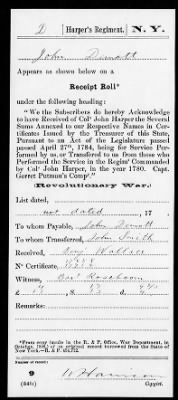 D | Harper's Regiment. | N. Y.
John Dimott
Appears as shown below on a
Receipt Roll*
under the following heading:
"We the Subscribers do hereby Acknowledge
to have Received of Colº John Harper the Several
Sums Annexed to our Respective Names in Cer-
tificates Issued by the Treasurer of this State,
Pursuant to an Act of the Legislature passed
passed April 27th, 1784, being for Service Per-
formed by us, or Transfered to us from those who
Performed the Service in the Regim't Commanded
by Colº John Harper, in the year 1780. Capt.
Garret Putman's Comp'."
(Revolutionary War.)
List dated,
not dated, 17
To whom Payable, John Dimott
To whom Transfered, John Smith
Received, Benj Wallace
Nº Certificate,
Witness, Bar't Roseboom
£ 17, s. 13, d.
Remarks:
*From copy made in the R. & P. Office, War Department, in
October, of an original record borrowed from the State of
New York.—R. & P.
9
W Harrison
Copyist.